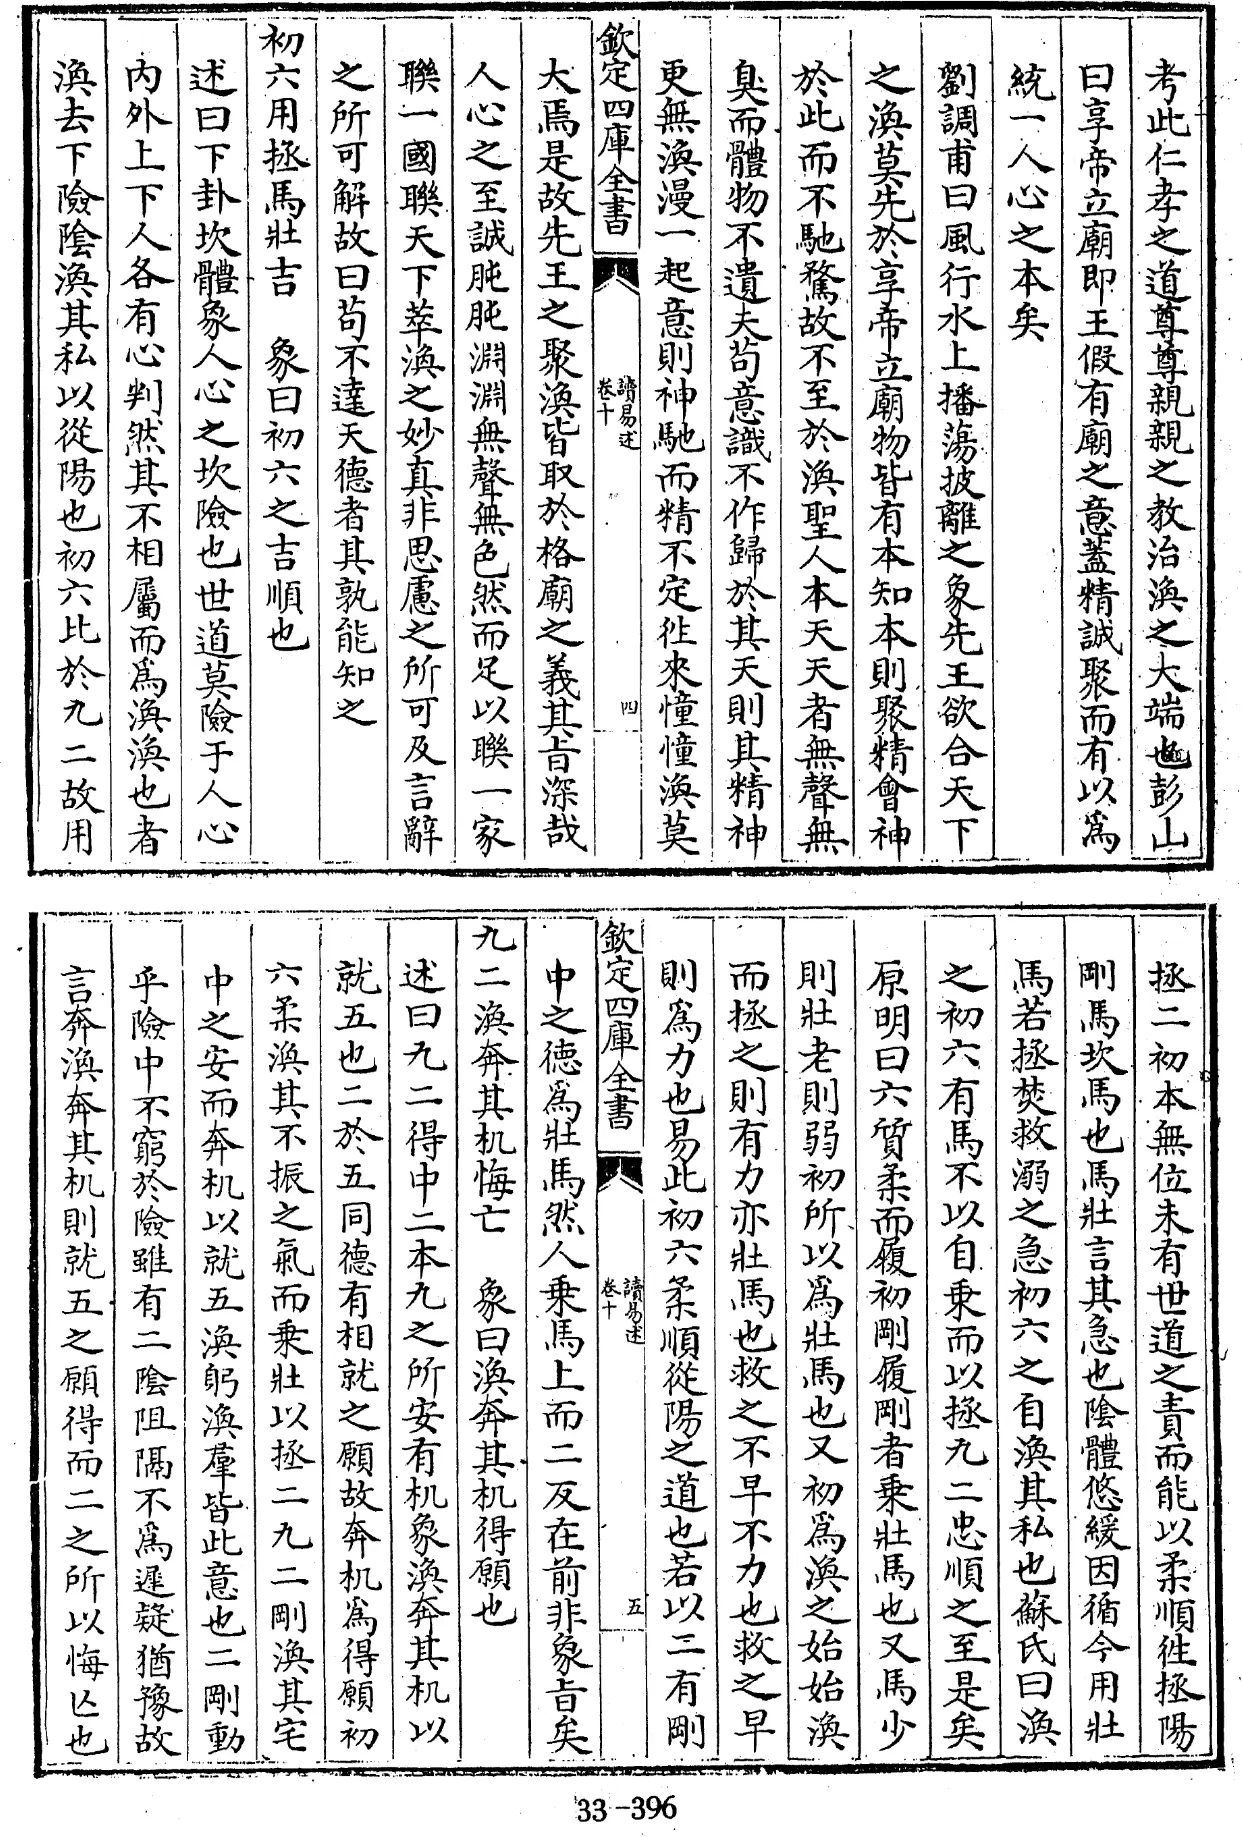 考此仁孝之道尊尊親親之教治渙之大端也彭山
曰享帝立廟即王假有廟之意蓋精誠聚而有以爲
統一人心之本矣
劉調甫曰風行水上播蕩披離之象先王欲合天下
之渙莫先於享帝立廟物皆有本知本則聚精會神
於此而不馳騖故不至於渙聖人本天天者無聲無
臭而體物不遺夫苟意識不作歸於其天則其精神
更無渙漫一起意則神馳而精不定徃來憧憧渙莫
欽定四庫全書
讀易述
卷十
四
大焉是故先王之聚渙皆取於格廟之義其旨深哉
人心之至誠肫肫淵淵無聲無色然而足以聯一家
聯一國聯天下萃渙之妙真非思慮之所可及言辭
之所可解故曰苟不達天德者其孰能知之
初六用拯馬壯吉　象曰初六之吉順也
述曰下卦坎體象人心之坎險也世道莫險于人心
內外上下人各有心判然其不相屬而爲渙渙也者
渙去下險陰渙其私以從陽也初六比於九二故用
拯二初本無位未有世道之責而能以柔順徃拯陽
剛馬坎馬也馬壯言其急也陰體悠緩因循今用壯
馬若拯焚救溺之急初六之自渙其私也蘇氏曰渙
之初六有馬不以自乗而以拯九二忠順之至是矣
原明曰六質柔而履初剛履剛者乗壯馬也又馬少
則壯老則弱初所以爲壯馬也又初爲渙之始始渙
而拯之則有力亦壯馬也救之不早不力也救之早
則爲力也易此初六柔順從陽之道也若以三有剛
欽定四庫全書
讀易述
卷十
五
中之德爲壯馬然人乗馬上而二反在前非象旨矣
九二渙奔其机悔亡　象曰渙奔其机得願也
述曰九二得中二本九之所安有机象渙奔其机以
就五也二於五同德有相就之願故奔机爲得願初
六柔渙其不振之氣而乗壯以拯二九二剛渙其宅
中之安而奔机以就五渙躬渙羣皆此意也二剛動
乎險中不窮於險雖有二陰阻隔不爲遲疑猶豫故
言奔渙奔其机則就五之願得而二之所以悔亾也
33-396